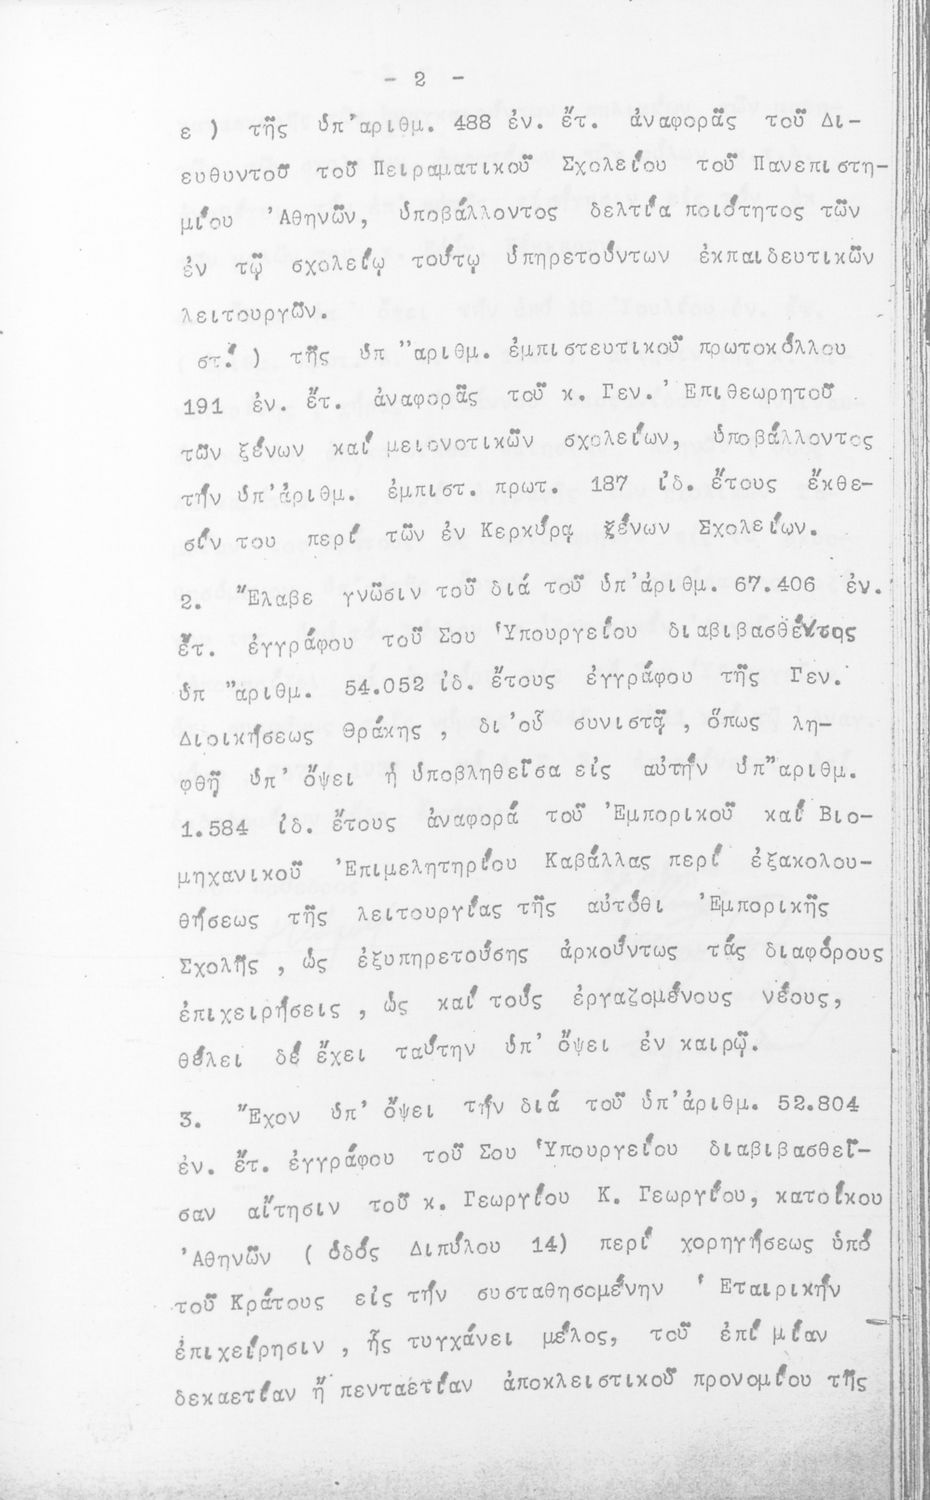 - 2 -
ε ) τῆς ὑπ'αριθμ. 488 ἐν. ἔτ. ἀναφορᾶς τοῦ Δι-
ευθυντοῦ τοῦ Πειραματικοῦ Σχολείου τοῦ Πανεπιστη-
μίου 'Αθηνῶν, ὑποβάλλοντος δελτία ποιότητος τῶν
ἐν τῷ σχολείῳ τούτῳ ὑπηρετούντων ἐκπαιδευτικῶν
λειτουργῶν.
στ! ) τῆς ὑπ "αριθμ. ἐμπιστευτικοῦ πρωτοκόλλου
191 ἐν. ἔτ. ἀναφορᾶς τοῦ κ. Γεν.'Επιθεωρητοῦ
τῶν ξένων καί μειονοτικῶν σχολείων, ὑποβάλλοντος
τήν ὑπ'ἀριθμ. ἐμπιστ. πρωτ. 187 ἰδ. ἔτους ἔκθε-
σίν του περί τῶν ἐν Κερκύρᾳ ξένων Σχολείων.
2. "Ελαβε γνῶσιν τοῦ διά τοῦ ὑπ'ἀριθμ. 67.406 ἐν.
ἔτ. ἐγγράφου τοῦ Σου Ὑπουργείου διαβιβασθέντος
ὑπ "αριθμ. 54.052 ἰδ. ἔτους ἐγγράφου τῆς Γεν.
Διοικήσεως Θράκης , δι'οὗ συνιστᾷ , ὅπως λη-
φθῇ ὑπ' ὄψει ἡ ὑποβληθεῖσα εἰς αὐτήν ὑπ"αριθμ.
1.584 ἰδ. ἔτους ἀναφορά τοῦ 'Εμπορικοῦ καί Βιο-
μηχανικοῦ 'Επιμελητηρίου Καβάλλας περί ἐξακολου-
θήσεως τῆς λειτουργίας τῆς αὐτόθι 'Εμπορικῆς
Σχολῆς , ὡς ἐξυπηρετούσης ἀρκούντως τάς διαφόρους
ἐπιχειρήσεις , ὡς καί τούς ἐργαζομένους νέους,
θέλει δέ ἔχει ταύτην ὑπ' ὄψει ἐν καιρῷ.
3. "Εχον ὑπ' ὄψει τήν διά τοῦ ὑπ'ἀριθμ. 52.804
ἐν. ἔτ. ἐγγράφου τοῦ Σου Ὑπουργείου διαβιβασθεῖ-
σαν αἴτησιν τοῦ κ. Γεωργίου Κ. Γεωργίου, κατοίκου
'Αθηνῶν ( ὁδός Διπύλου 14) περί χορηγήσεως ὑπό
τοῦ Κράτους εἰς τήν συσταθησομένην Ἑταιρικήν
ἐπιχείρησιν , ἧς τυγχάνει μέλος, τοῦ ἐπί μίαν
δεκαετίαν ἤ πενταετίαν ἀποκλειστικοῦ προνομίου τῆς